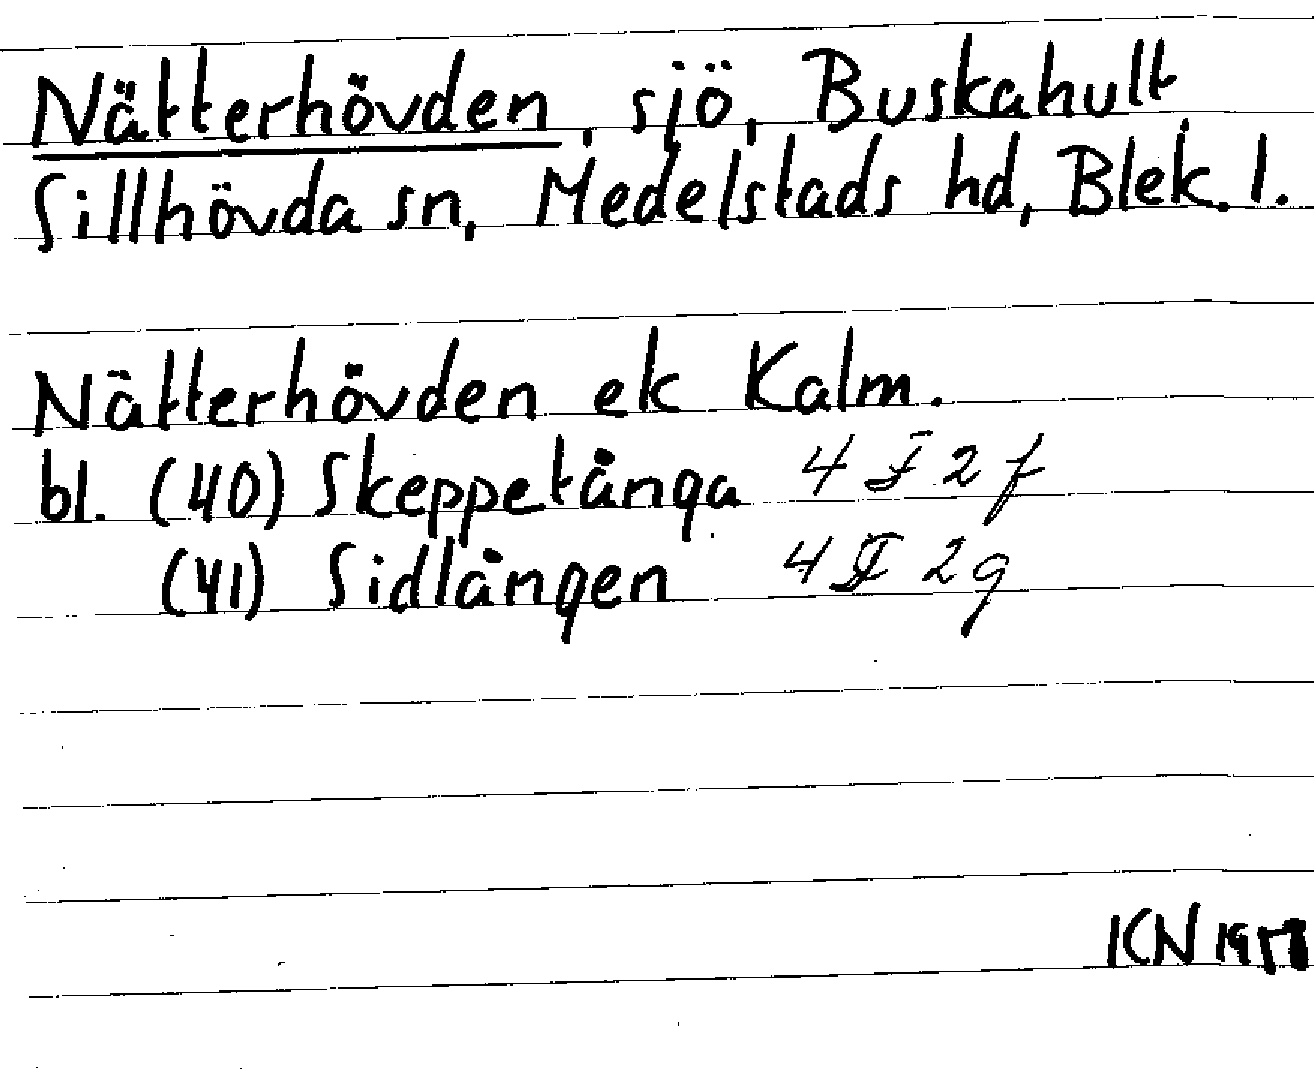 Nätterhövden, sjö, Buskahult
Sillhövda sn, Medelstads hd, Blek. l.
Nätterhövden ek Kalm.
bl. (40) Skeppetånga 4 F 2 f
(41) Sidlången 4 F 2 g
KN